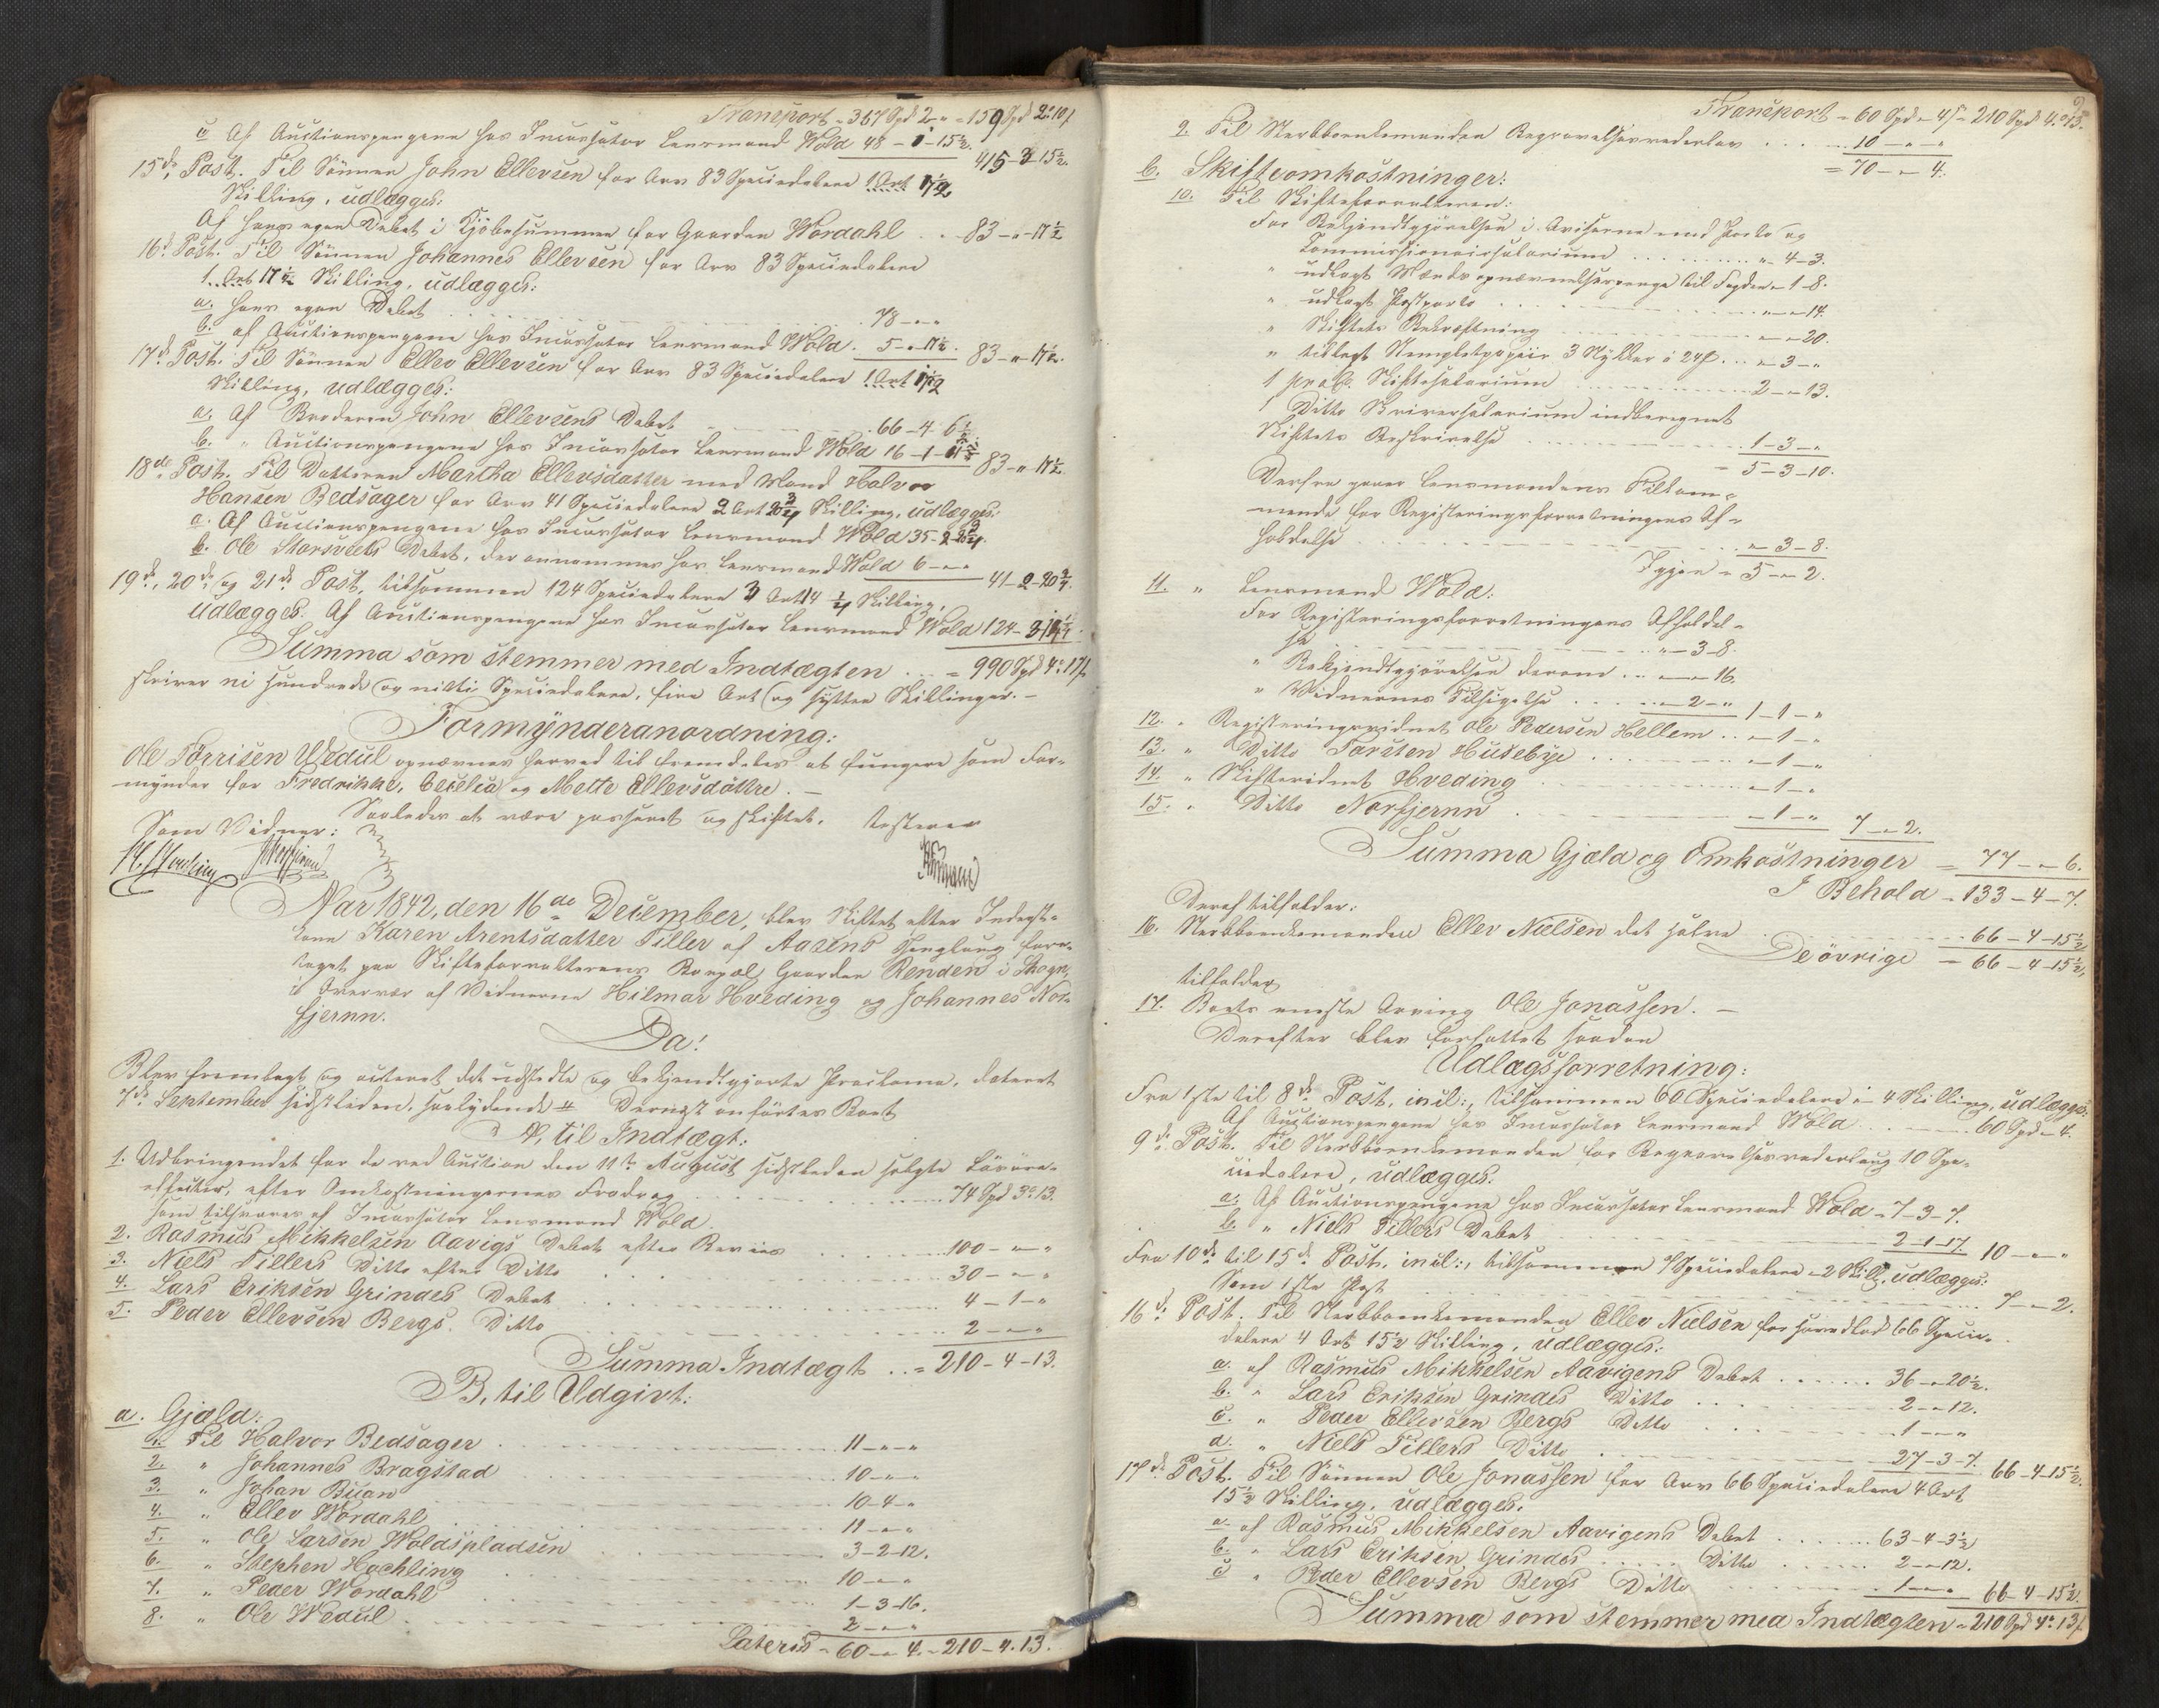 Transport = 367 Spd 2 - " = 159 Spd 2 . 10 f
c Af Auctionspengene hos Incassator Lensmand Wold 48 - 1 - 15½. 415 - 3 - 15½.
15de Post. Til Sønnen John Ellevsen for Arv 83 Speciedalere 1 Ort 17½
Skilling, udlægges:
Af hans egen Debet i Kjøbesummen for Gaarden Wordahl . . 83 - " - 17½
16d. Post. Til Sønnen Johannes Ellevsen for Arv 83 Speciedalere
1 Ort 17½ Skilling, udlægges:
a. hans egen Debet . . . 78 - " - "
b. af Auctionspengene hos Incassator Lensmand Wold . 5 - " - 17½. 83 - " - 17½.
17d Post. Til Sønnen Ellev Ellevsen for Arv 83 Speciedalere 1 Ort 17½
Skilling, udlægges:
a. Af Broderen John Ellevsens Debet . . 66 - 4 - 6½
b. " Auctionspengene hos Incassator Lensmand Wold 16 - 1 - 11 83 - " - 17½.
18de Post. Til Datteren Martha Ellevsdatter med Mand Halvor
Hansen Bedsager for Arv 41 Speciedalere 2 Ort 20¾ Skilling, udlægges:
a. Af Auctionspengene hos Incassator Lensmand Wold 35 - 2 - 20¾.
b. Ole Storsveets Debet, der annammes hos Lensmand Wold 6 - " - " 41 - 2 - 20¾.
19de, 20de og 21de Post, tilsammen 124 Speciedalere 3 Ort 14¼ Skilling,
udlægges. Af Auctionspengene hos Incassator Lensmand Wold 124 - 3 - 14¼.
Summa som stemmer med Indtægten . . = 990 Spd 4 . 17 f.
skriver ni hundrede og nitti Speciedalere, fire Ort og sytten Skillinger. -
Formynderanordning:
Ole Torrisen Wedul opnævnes herved til fremdeles at fungere som For-
mynder for Fredrikke, Cecelia og Mette Ellevsdøttre. -
Saaledes at være passeret og skiftet, testerer
Som Vidner:
Aar 1842, den 16de December, blev Skiftet efter Inderst-
kone Karen Arentsdatter Tiller af Aasens Thinglaug fore-
taget paa Skifteforvalterens Bopæl Gaarden Renden i Skogn,
i Overvær af Vidnerne Hilmar Hveding og Johannes Nor-
fjernn.
Da!
Blev fremlagt og acteret det udstedte og bekjendtgjorte Proclama, dateret
7de September sidstleden, saalydende # Dernæst anførtes Boet
A, til Indtægt:
1. Udbringendet for de ved Auction den 11te August sidstleden solgte Løsøre-
effecter, efter Omkostningernes Fradrag . . . 74 Spd 3 . 13.
som tilsvares af Incassator Lensmand Wold.
2. Rasmus Mikkelsen Aavigs Debet efter Beviis . . . 100 - " - "
3. Niels Tillers Ditto efter Ditto . . . 30 - " - "
4. Lars Eriksen Grindes Debet . . . 4 - 1 - "
5. Peder Ellevsen Bergs. Ditto . . . 2 - " - "
Summa Indtægt . . = 210 - 4 - 13.
B, til Udgivt:
a. Gjæld:
1. Til Halvor Bedsager . . . 11 - " - "
2. " Johannes Bragstad . . . 10 - " - "
3. " Johan Buan . . . 10 - 4 - "
4. " Ellev Wordahl . . . 11 - " - "
5. " Ole Larsen Woldspladsen . . . 3 - 2 - 12.
6. " Stephen Hachling . . . 10 - " - "
7. " Peder Wordahl . . . 1 - 3 - 16.
8. " Ole Wedul . . . 2 - " - "
Lateris = 60 - " - 4. = 210 - 4 - 13.
9
Transport = 60 Spd " 4 f = 210 Spd 4 . 13.
9. Til Sterbboenkemanden Begravelsesvederlag . . . 10 - " - "
= 70 - " - 4.
b. Skifteomkostninger:
10. Til Skifteforvalteren:
For Bekjendtgjørelsen i Aviserne med Porto og
Commissionairsalarium . . . " - 4 - 3.
" udlagt Mands opnævnelsespenge til Fogden " - 1 - 8.
" udlagt Postporto . . . " - " - 14.
" Skiftets Bekræftning . . . " - " - 20.
" tillagt Stemplet papiir 3 Stykker á 24 f. . . " - 3 - "
1 proC. Skiftesalarium . . . 2 - " - 13.
1 Ditto Skriversalarium indberegnet
Skiftets Beskrivelse . . . 1 - 3 - "
= 5 - 3 - 10.
Derfra gaaer Lensmandens Tilkom-
mende for Registeringsforretningens Af-
holdelse . . . " - 3 - 8.
Igjen = 5 - " - 2.
11. " Lensmand Wold:
For Registeringsforretningens Afholdel-
se . . . " - 3 - 8.
" Bekjendtgjørelsen derom . . . " - " - 16.
" Vidnernes Tilsigelse . . . " - 2 - " 1 - 1 - "
12. " Registeringsvidnet Ole Pedersen Hellem . . " - 1 - "
13. " Ditto Torsten Husebye . . . " - 1 - "
14. " Skiftevidnet Hveding . . . " - 1 - "
15. " Ditto Norfjernn . . . " - 1 - " 7 - " - 2.
Summa Gjæld og Omkostninger = 77 - " - 6.
I Behold = 133 - 4 - 7.
Deraf tilfalder:
16. Sterbboenkemanden Ellev Nielsen det halve . . . 66 - 4 - 15½
De øvrige = 66 - 4 - 15½,
tilfalder
17. Boets eneste Arving Ole Jonassen. -
Derefter blev forfattet saadan
Udlægsforretning:
Fra 1ste til 8de Post, incl:, tilsammen 60 Speciedalere " 4 Skilling, udlægges:
Af Auctionspengene hos Incassator Lensmand Wold . . . 60 Spd " 4.
9de Post. Til Sterbboenkemanden for Begravelsesvederlag 10 Spe-
ciedalere, udlægges:
a. Af Auctionspengene hos Incassator Lensmand Wold = 7 - 3 - 7.
b. " Niels Tillers Debet . . . 2 - 1 - 17. 10 - " - "
Fra 10de til 15de Post, incl:, tilsammen 7 Speciedalere " 2 Skill, udlægges:
Som 1ste Post . . . 7 - " - 2.
16de Post. Til Sterbboenkemanden Ellev Nielsen for Hovedlod 66 Specie-
dalere 4 Ort 15½ Skilling, udlægges:
a. af Rasmus Mikkelsen Aavigens Debet . . . 36 - " - 20½.
b. " Lars Eriksen Grindes Ditto . . . 2 - " - 12.
c. " Peder Ellevsen Bergs Ditto . . . 1 - " - "
d. " Niels Tillers Ditto . . . 27 - 3 - 7. 66 - 4 - 15½.
17de Post. Til Sønnen Ole Jonassen for Arv 66 Speciedalere 4 Ort
15½ Skilling, udlægges:
a. af Rasmus Mikkelsen Aavigens Debet . . . 63 - 4 - 3½
b. " Lars Eriksen Grindes . . . Ditto . . . 2 - " - 12.
c " Peder Ellevsen Bergs Ditto . . . 1 - " - " 66 - 4 - 15½.
Summa som stemmer med Indtægten = 210 Spd 4 . 13 f.